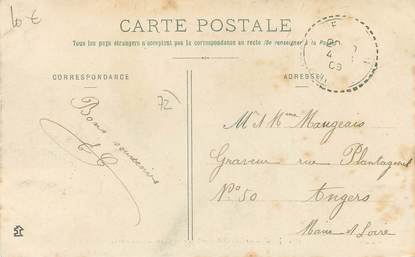 10 €
CARTE POSTALE
Tous les pays étrangers n'acceptent pas la correspondance au recto (Se renseigner à la Poste)
CORRESPONDANCE
ADRESSE
72
Bons souvenirs
Mr & Mme Maugeais
Graveur rue Plantagenet
No 50 Angers
Maine & Loire